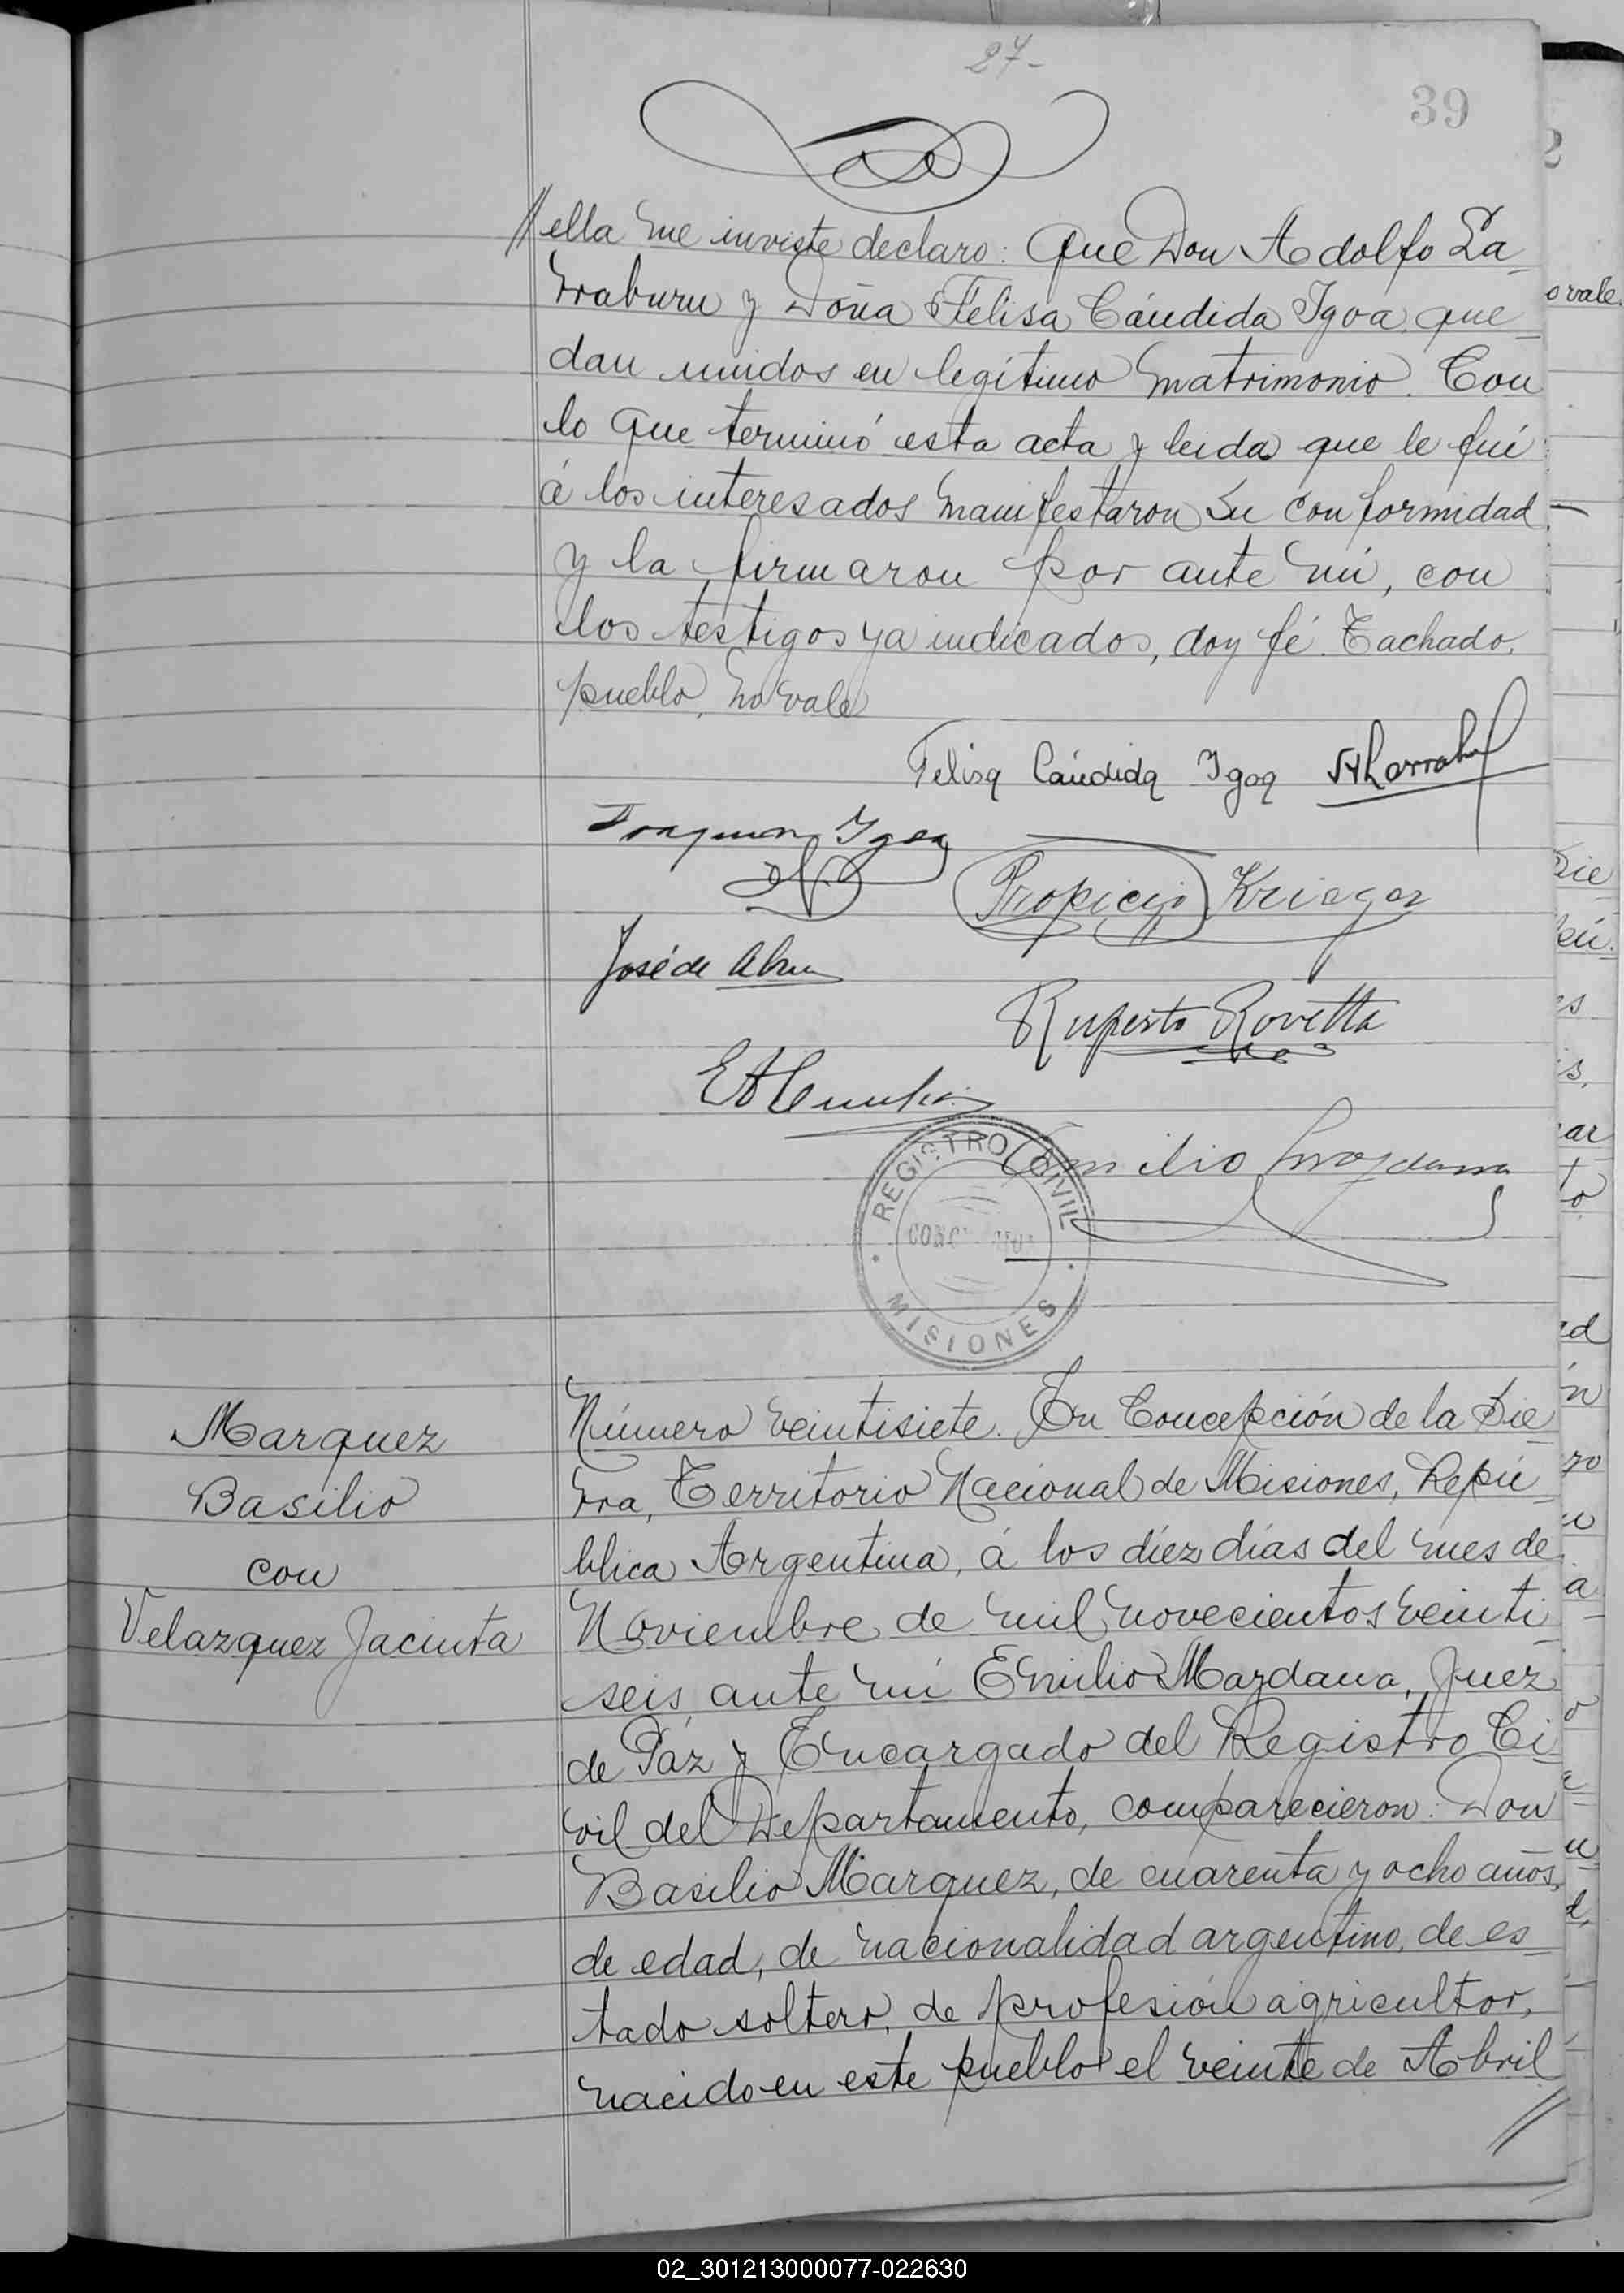 27-
39
// ella me inviste declaro: Que Don Adolfo La-
rraburu y Doña Felisa Cándida Igoa, que-
dan unidos en legítimo matrimonio. Con
lo que terminó esta acta y leida que le fué
á los interesados manifestaron su conformidad
y la firmaron por ante mí, con
los testigos ya indicados, doy fé. Tachado,
pueblo, no vale
Felisa Cándida Igoa
Igoa
Propicio Krieger
José de
Ruperto Rovetta
Emilio
REGISTRO CIVIL
MISIONES
Marquez
Basilio
con
Velazquez Jacinta
Número veintisiete. En Concepción de la Sie-
rra, Territorio Nacional de Misiones, Repú-
blica Argentina, á los diez días del mes de
Noviembre de mil novecientos veinti-
seis, ante mí Emilio Mazdana, Juez
de Paz y Encargado del Registro Ci-
vil del Departamento, comparecieron: Don
Basilio Marquez, de cuarenta y ocho años,
de edad, de nacionalidad argentino, de es-
tado soltero, de profesión agricultor,
nacido en este pueblo el veinte de Abril
//
o vale.
02_301213000077-022630